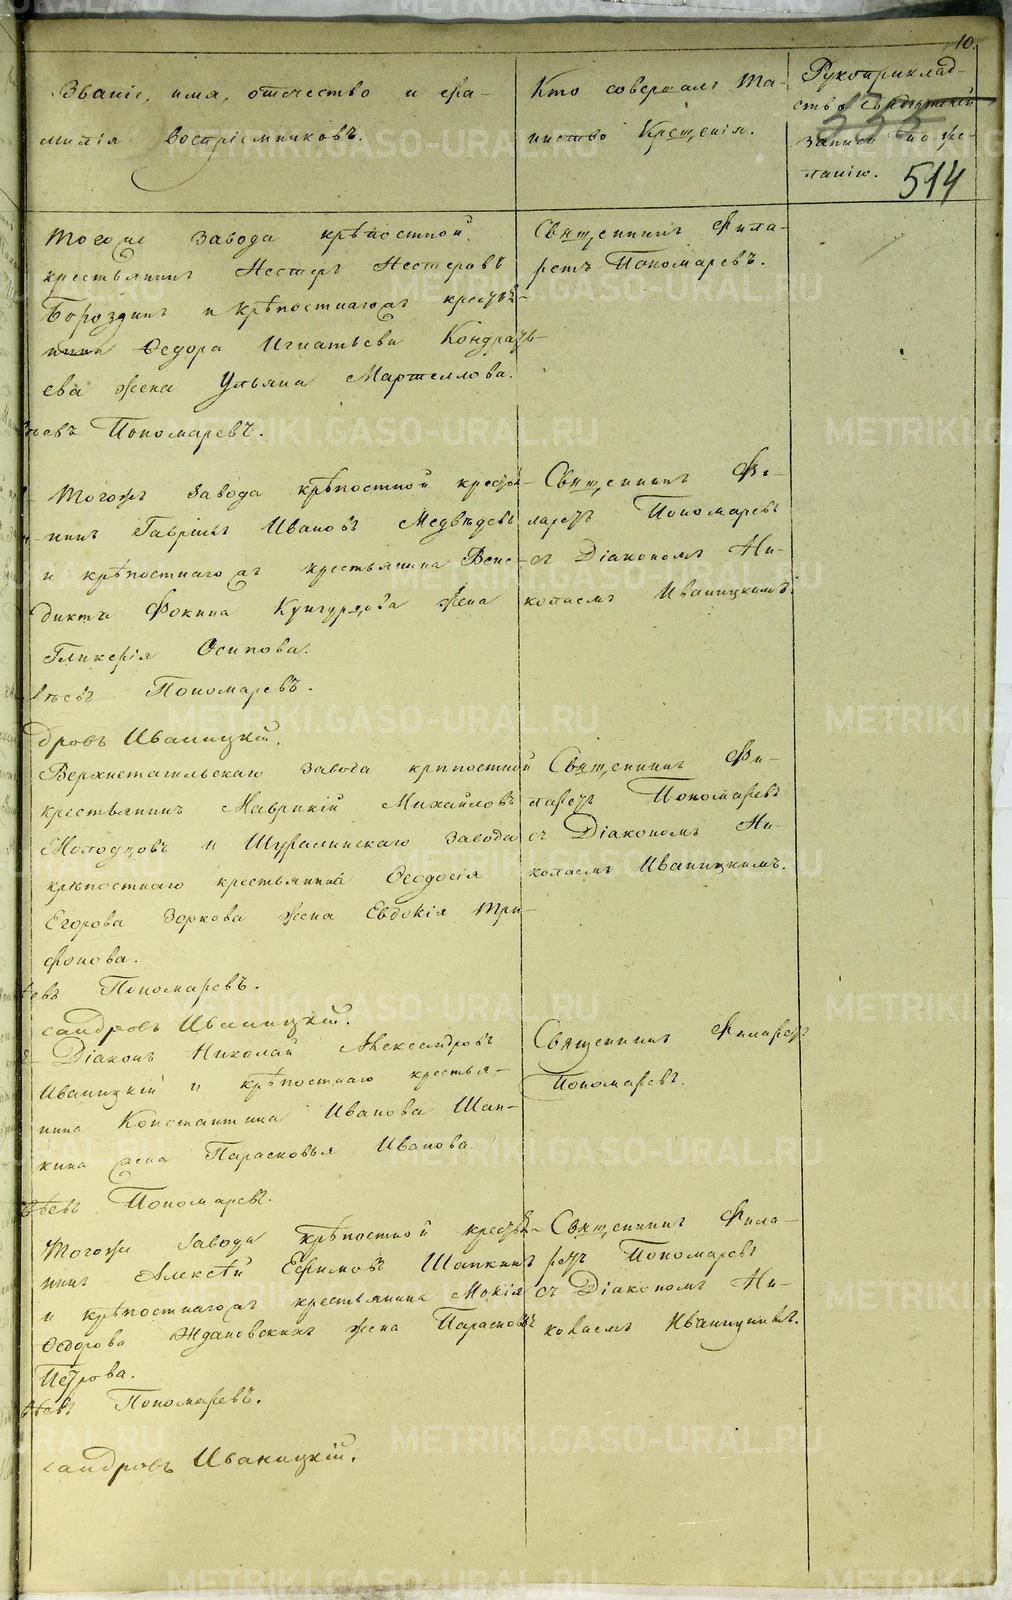 10.
Званіе, имя, отчество и фа-
милія воспріемниковъ.
Кто совершалъ Та-
инство Крещенія.
Рукоприклад-
ство свидѣтелей
записи по же-
ланію.
335
514
Тогоже завода крѣпостной
крестьянинъ Нестеръ Нестеровъ
Бороздинъ и крѣпостнагожъ крестья-
нина Ѳедора Игнатьева Кондрать-
ева жена Ульяна Мартемлова.
Священникъ Фила-
ретъ Пономаревъ.
ѣевъ Пономаревъ.
Тогожъ завода крѣпостной кресть-
нинъ Гаврілъ Ивановъ Медвѣдевъ
и крѣпостнагожъ крестьянина Вене-
дикта Фокина Кунгурцова жена
Гликерія Осипова.
Священникъ Фи-
ларетъ Пономаревъ
съ Діакономъ Ни-
колаемъ Иваницкимъ.
ѣевъ Пономаревъ.
дровъ Иваницкій.
Верхнетагильскаго завода крѣпостной
крестьянинъ Маврикій Михайловъ
Молодцовъ и Шуралинскаго завода
крѣпостнаго крестьянина Ѳеодосія
Егорова Зоркова жена Евдокія Три-
фонова.
Священникъ Фи-
ларетъ Пономаревъ
съ Діакономъ Ни-
колаемъ Иваницкимъ.
ѣевъ Пономаревъ.
сандровъ Иваницкій.
Діаконъ Николай Александровъ
Иваницкій и крѣпостнаго крестья-
нина Константина Иванова Шап-
кина жена Парасковья Иванова.
Священникъ Филаретъ
Пономаревъ.
ѣевъ Пономаревъ.
Тогоже завода крѣпостной крестья-
нинъ Алексѣй Ефимовъ Шапкинъ
и крѣпостнагожъ крестьянина Мокія
Ѳедорова Ждановскихъ жена Парасковья
Петрова.
Священникъ Фила-
ретъ Пономаревъ
съ Діакономъ Ни-
колаемъ Иваницкимъ.
ѣевъ Пономаревъ.
сандровъ Иваницкій.
METRIKI.GASO-URAL.RU